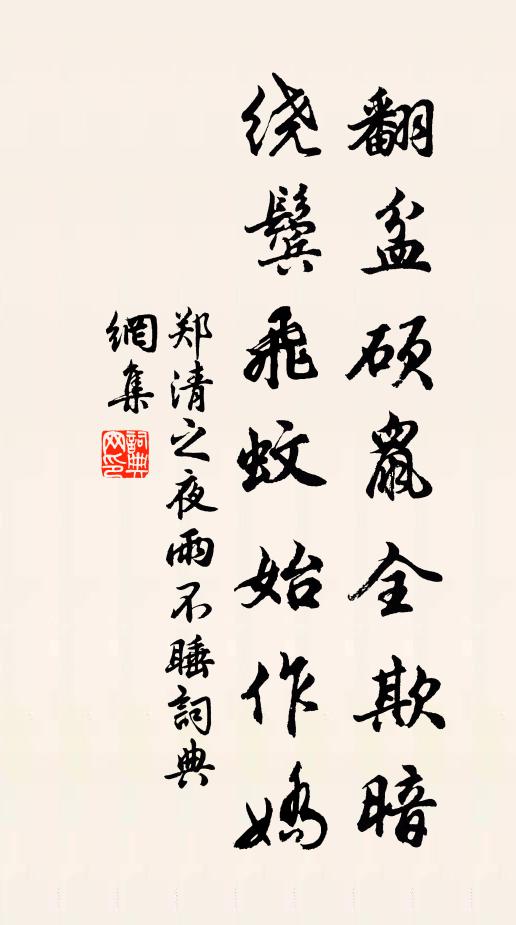 翻盆硕鼠全欺暗
绕鬓飞蚊始作嬌
郑清之夜雨不睡詞典
網集
詞典
网印